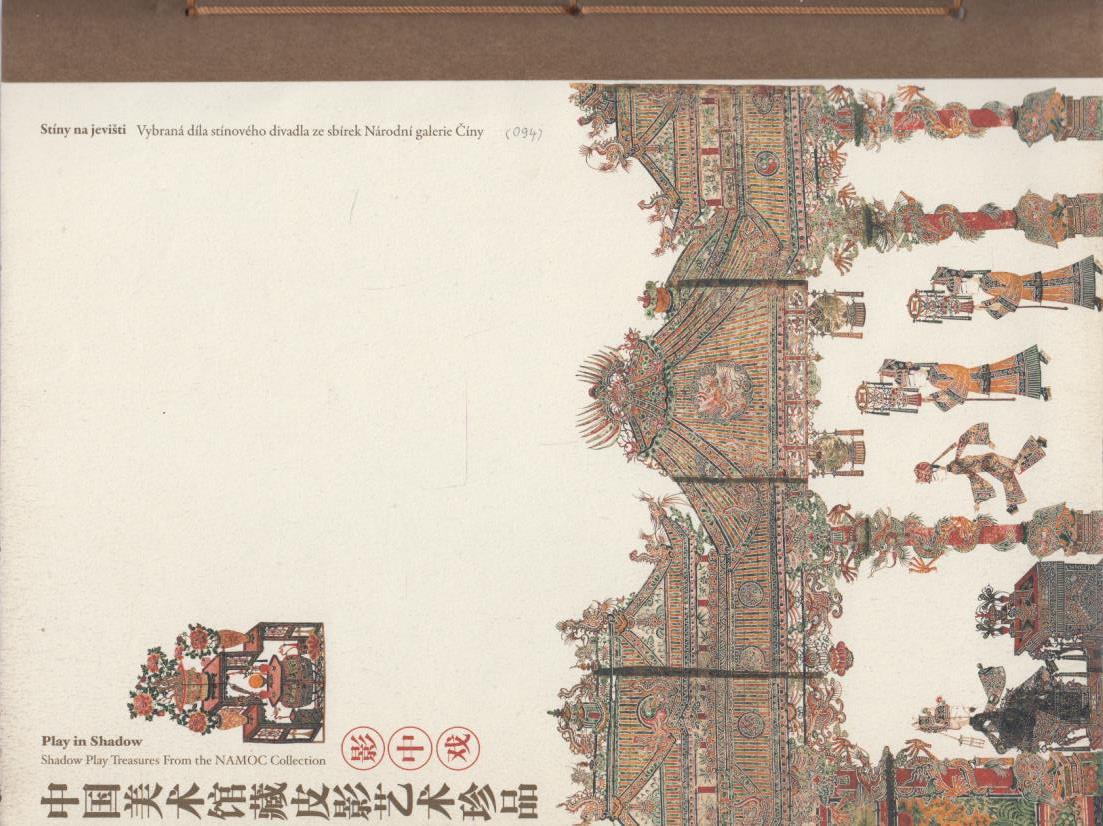 Stíny na jevišti Vybraná díla stínového divadla ze sbírek Národní galerie Číny (094)
Play in Shadow
Shadow Play Treasures From the NAMOC Collection
影中戏
中国美术馆藏皮影艺术珍品